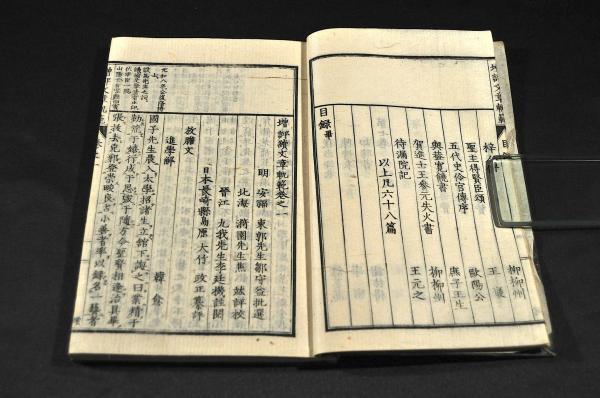 增評文章軌範
梓人傳
柳柳州
聖主得賢臣頌
王襃
五代史伶官傳序
歐陽公
與藝寬饒書
燕子王生
賀進士王參元失火書
柳柳州
待漏院記
王元之
以上凡六十八篇
目錄畢
增評續文章軌範卷之一
明 安福 東郭先生鄒守益批選
北海 漪園先生焦 竑評校
晉江 九我先生李廷機註閱
日本長崎縣島原 大竹 政正纂評
放膽文
進學解
韓愈
國子先生晨入太學招諸生立館下誨之曰業精于
勤荒于嬉行成于思毀于隨方今聖賢相逢治具畢
張拔去兇邪登崇畯良占小善者率以錄名一藝者